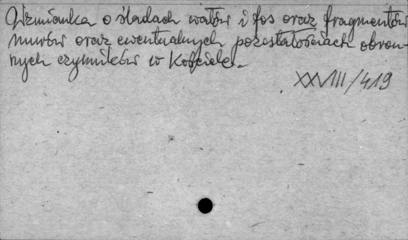 Wzmianka o śladach wałów i fos oraz fragmentów
murów oraz ewentualnych pozostałościach obron-
nych czynników w Kościele.
XXVIII/419